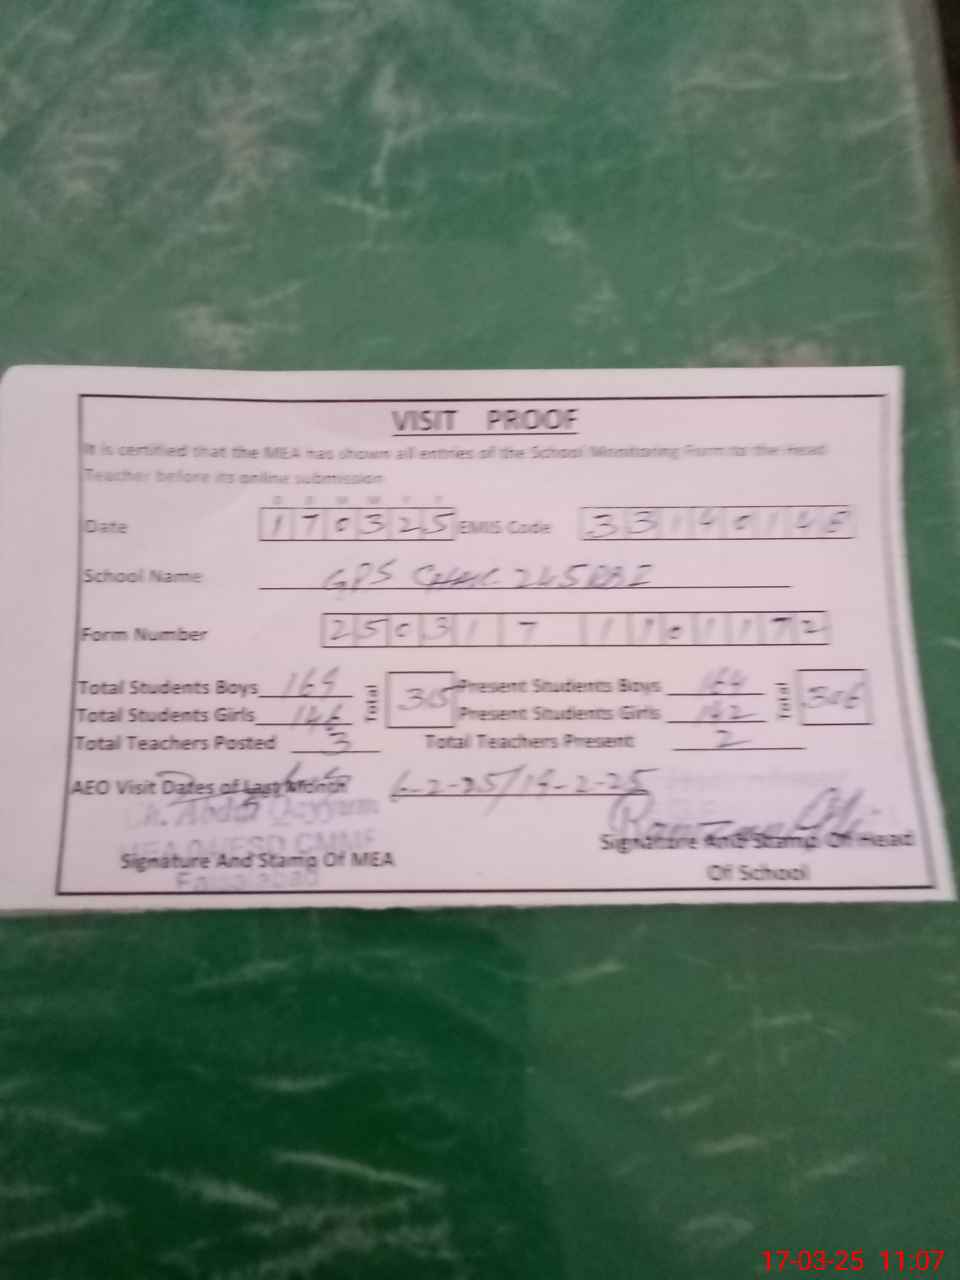 VISIT PROOF
It is certified that the MEA has shown all entries of the School Monitoring Form to the Head
Teacher before its online submission
D D M M Y Y
Date 170325 EMIS Code 3314014
School Name GPS 245 RB I
Form Number 250317 1101172
Total Students Boys 169 Total 315 Present Students Boys 164 Total 306
Total Students Girls 146 Present Students Girls 142
Total Teachers Posted 3 Total Teachers Present 2
AEO Visit Dates of Last Month 6-2-25/19-2-25
Ch. Abdul Qayyum
Signature And Stamp Of MEA Signature And Stamp Of Head
Faisalabad Of School
17-03-25 11:07